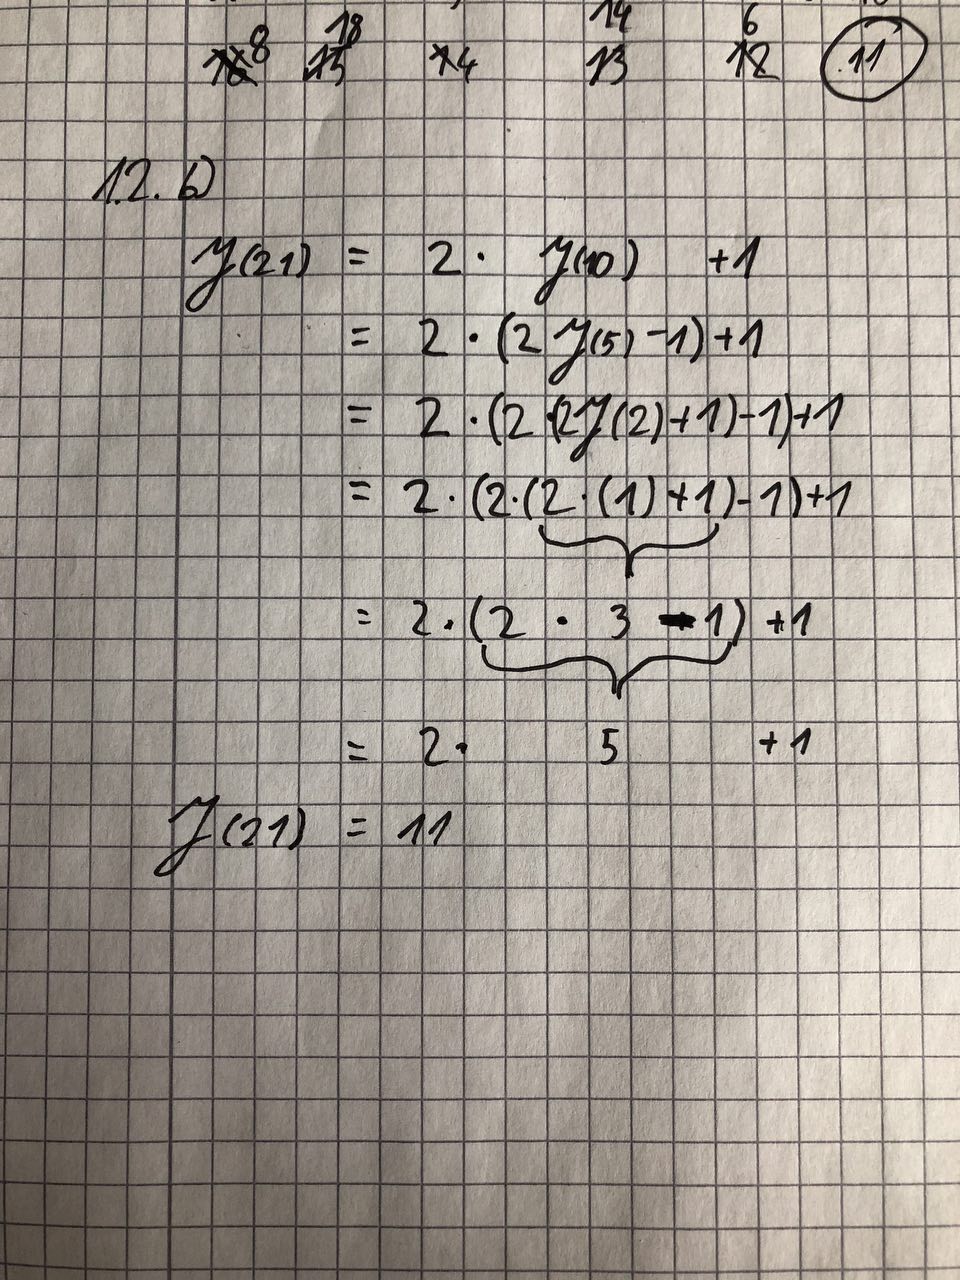 14 6
8 18
16 15 14 13 12 11
12. b)
J(21) = 2 · J(10) +1
= 2 · (2 J(5) -1) +1
= 2 · (2 · (2J(2)+1)-1)+1
= 2 · (2·(2·(1)+1)-1)+1
= 2 · (2 · 3 -1) +1
= 2 · 5 +1
J(21) = 11